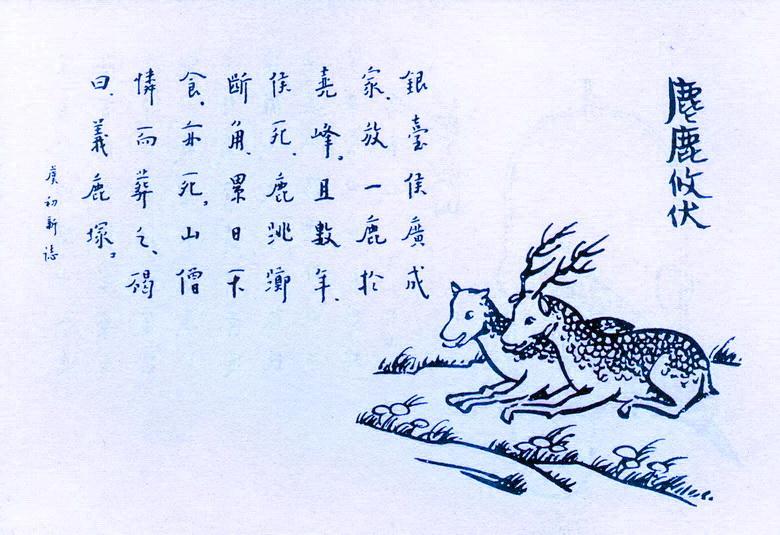 麀鹿攸伏
銀臺侯廣成
家、放一鹿於
堯峰。且數年、
侯死、鹿跳躑
斷角、累日不
食、亦死。山僧
憐而葬之、碣
曰、義鹿塚。
虞初新誌